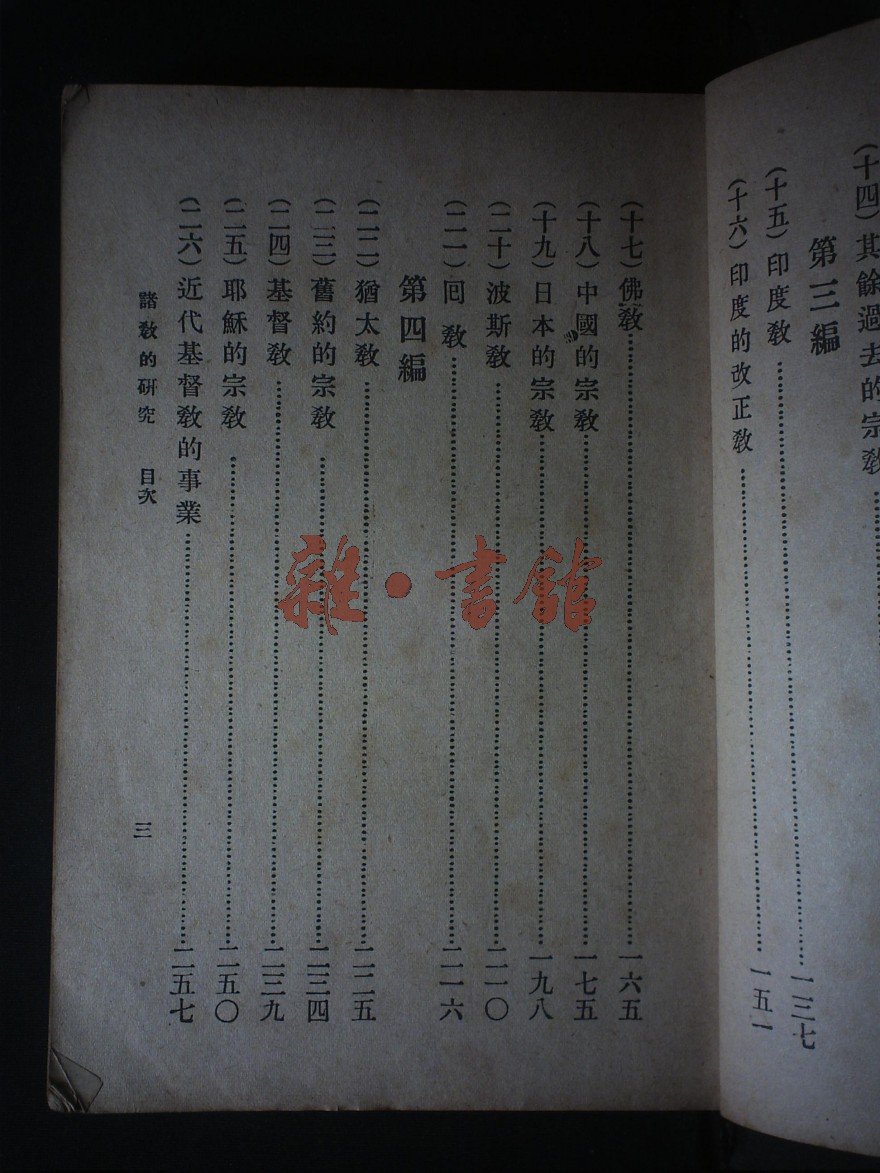 (十四)其餘過去的宗教
第三編
(十五)印度教…一三七
(十六)印度的改正教…一五一
(十七)佛教…一六五
(十八)中國的宗教…一七五
(十九)日本的宗教…一九八
(二十)波斯教…二一〇
(二一)囘教…二一六
第四編
(二二)猶太教…二二五
(二三)舊約的宗教…二三四
(二四)基督教…二三九
(二五)耶穌的宗教…二五〇
(二六)近代基督教的事業…二五七
諸教的研究 目次
三
雜·書館